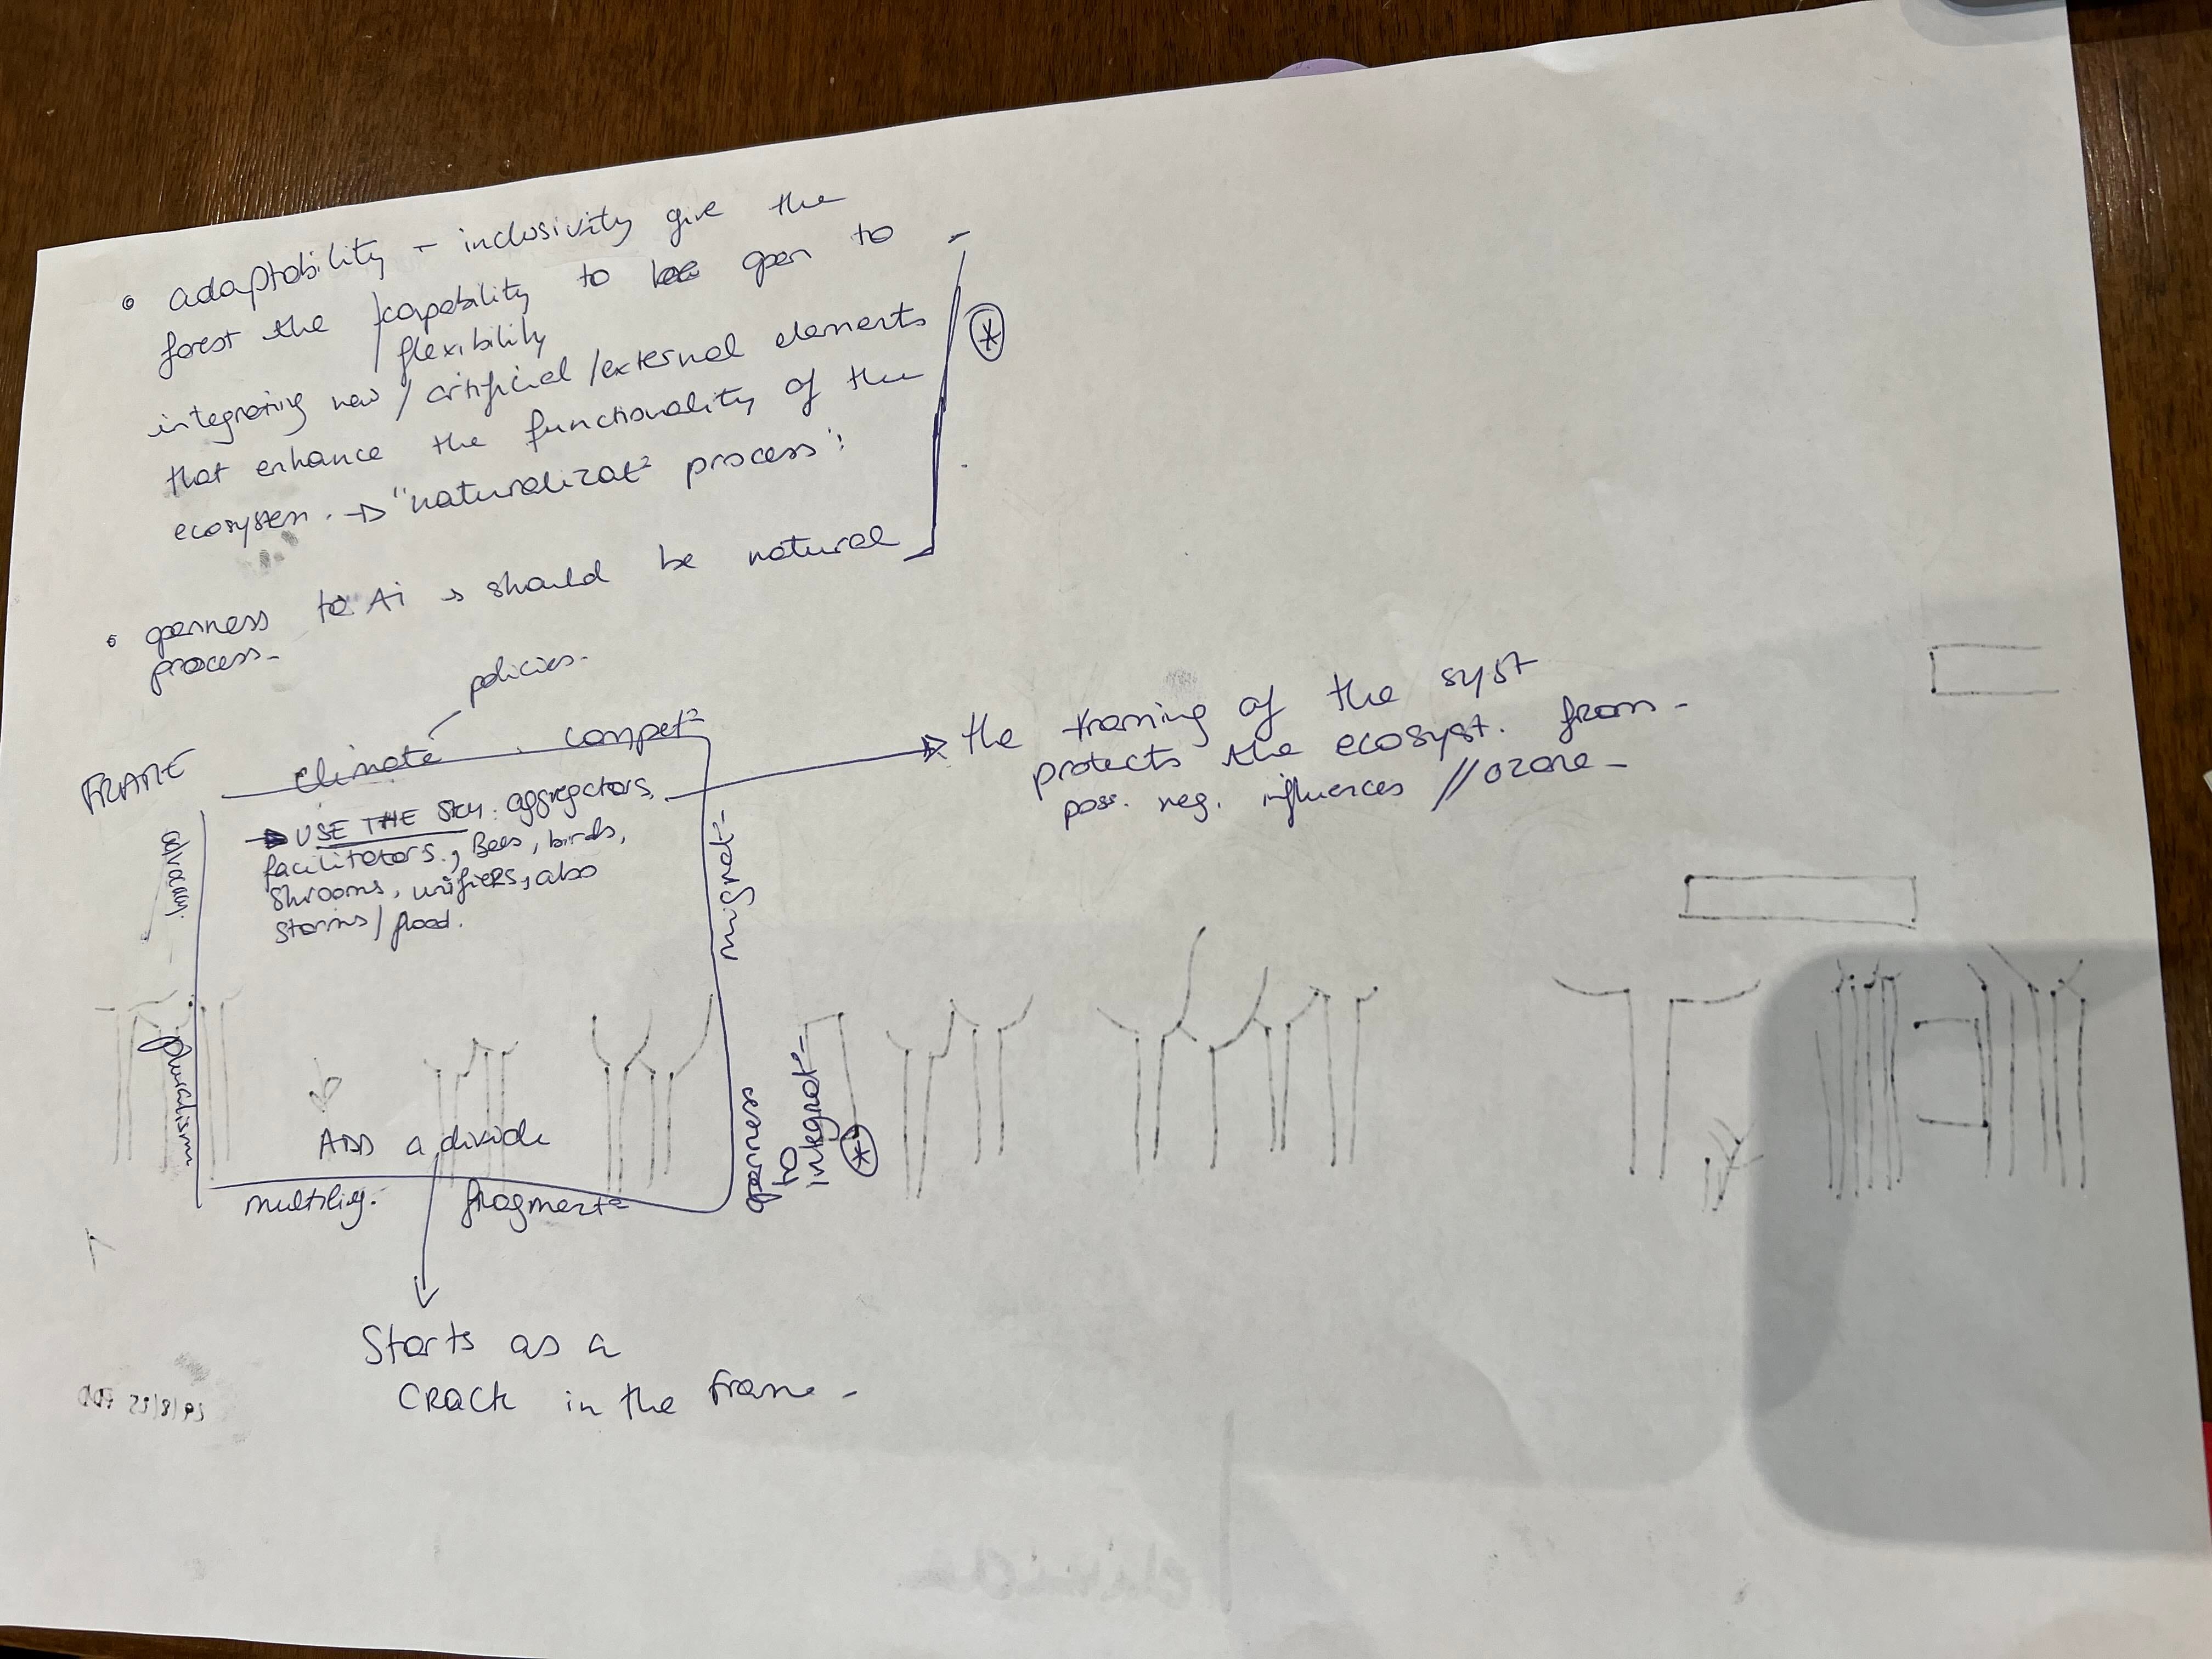 • adaptability + inclusivity give the
forest the / capability to be open to
/ flexibility
integrating new / artificial / external elements
that enhance the functionality of the
ecosystem. → "naturalizat= process":
• openness to Ai → should be natural
process-
*
policies.
FRAME
climate compet=
→ USE THE SKY: aggregators,
facilitators, Bees, birds,
Shrooms, unifiers, also
storms / flood.
the framing of the syst
protects the ecosyst. from-
poss. neg. influences // ozone-
migrat=
openness
to
integrat=
*
pluralism
ADD a divide
multiling. fragment=
Starts as a
CRACK in the frame-